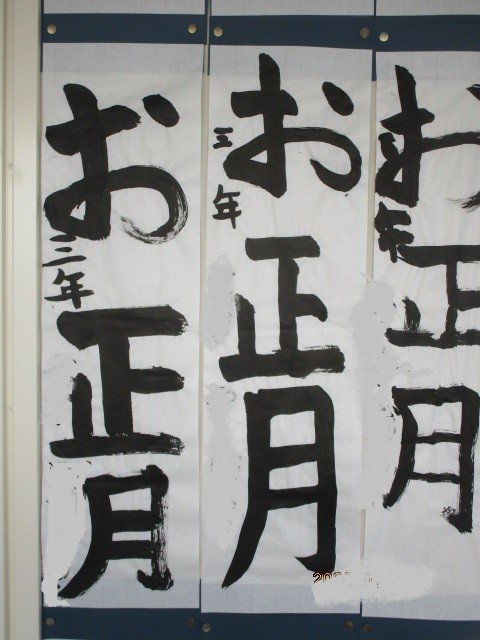 お正月
三年
お正月
三年
お正月
年